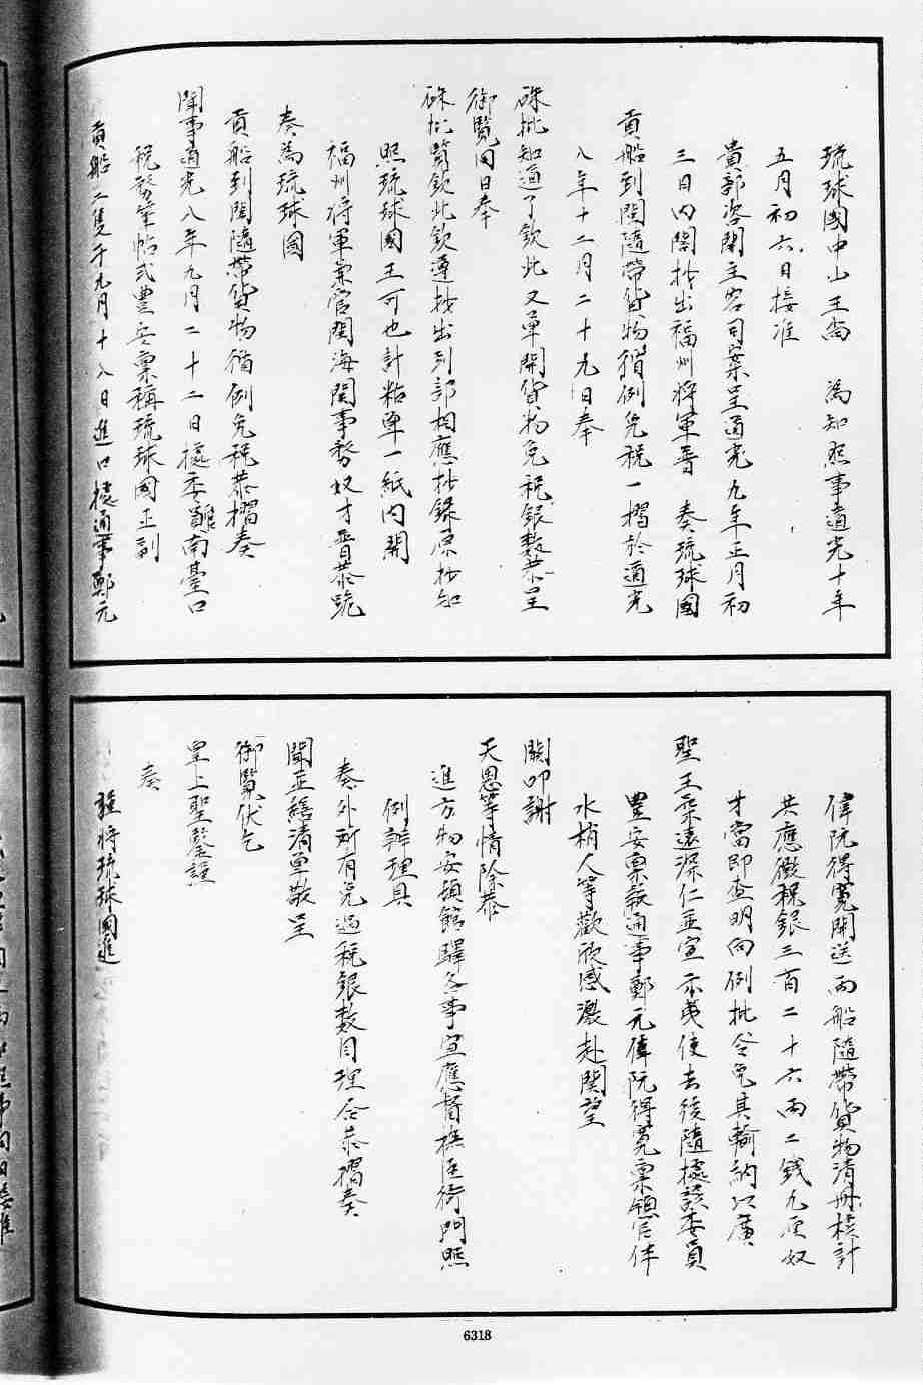 琉球國中山王尚 為知照事道光十年
五月初六日接准
貴部咨開主客司案呈道光九年正月初
三日內閣抄出福州將軍晋 奏琉球國
貢船到閩隨帶貨物循例免稅一摺於道光
八年十二月二十九日奉
硃批知道了欽此又單開貨物免稅銀數恭呈
御覽同日奉
硃批覽欽此欽遵抄出到部相應抄錄原抄知
照琉球國王可也計粘單一紙內開
福州將軍兼管閩海關事務奴才晋恭跪
奏為琉球國
貢船到閩隨帶貨物循例免稅恭摺奏
聞事道光八年九月二十二日據委離南臺口
稅務筆帖式豊安稟稱琉球國正副
貢船二隻于九月十八日進口據通事鄭元
偉阮得寬開送兩船隨帶貨物清冊核計
共應徵稅銀三百二十六兩二錢九厘奴
才當即查明向例批令免其輸納以廣
聖王柔遠深仁並宣示夷使去後隨據該委員
豊安稟報通事鄭元偉阮得寬稟領官伴
水梢人等歡欣感激赴關望
闕叩謝
天恩等情除恭
進方物安頓館驛各事宜應督撫臣衙門照
例辦理具
奏外所有免過稅銀數目理合恭摺奏
聞並繕清單敬呈
御覽伏乞
皇上聖鑒謹
奏
謹將琉球國進
6318